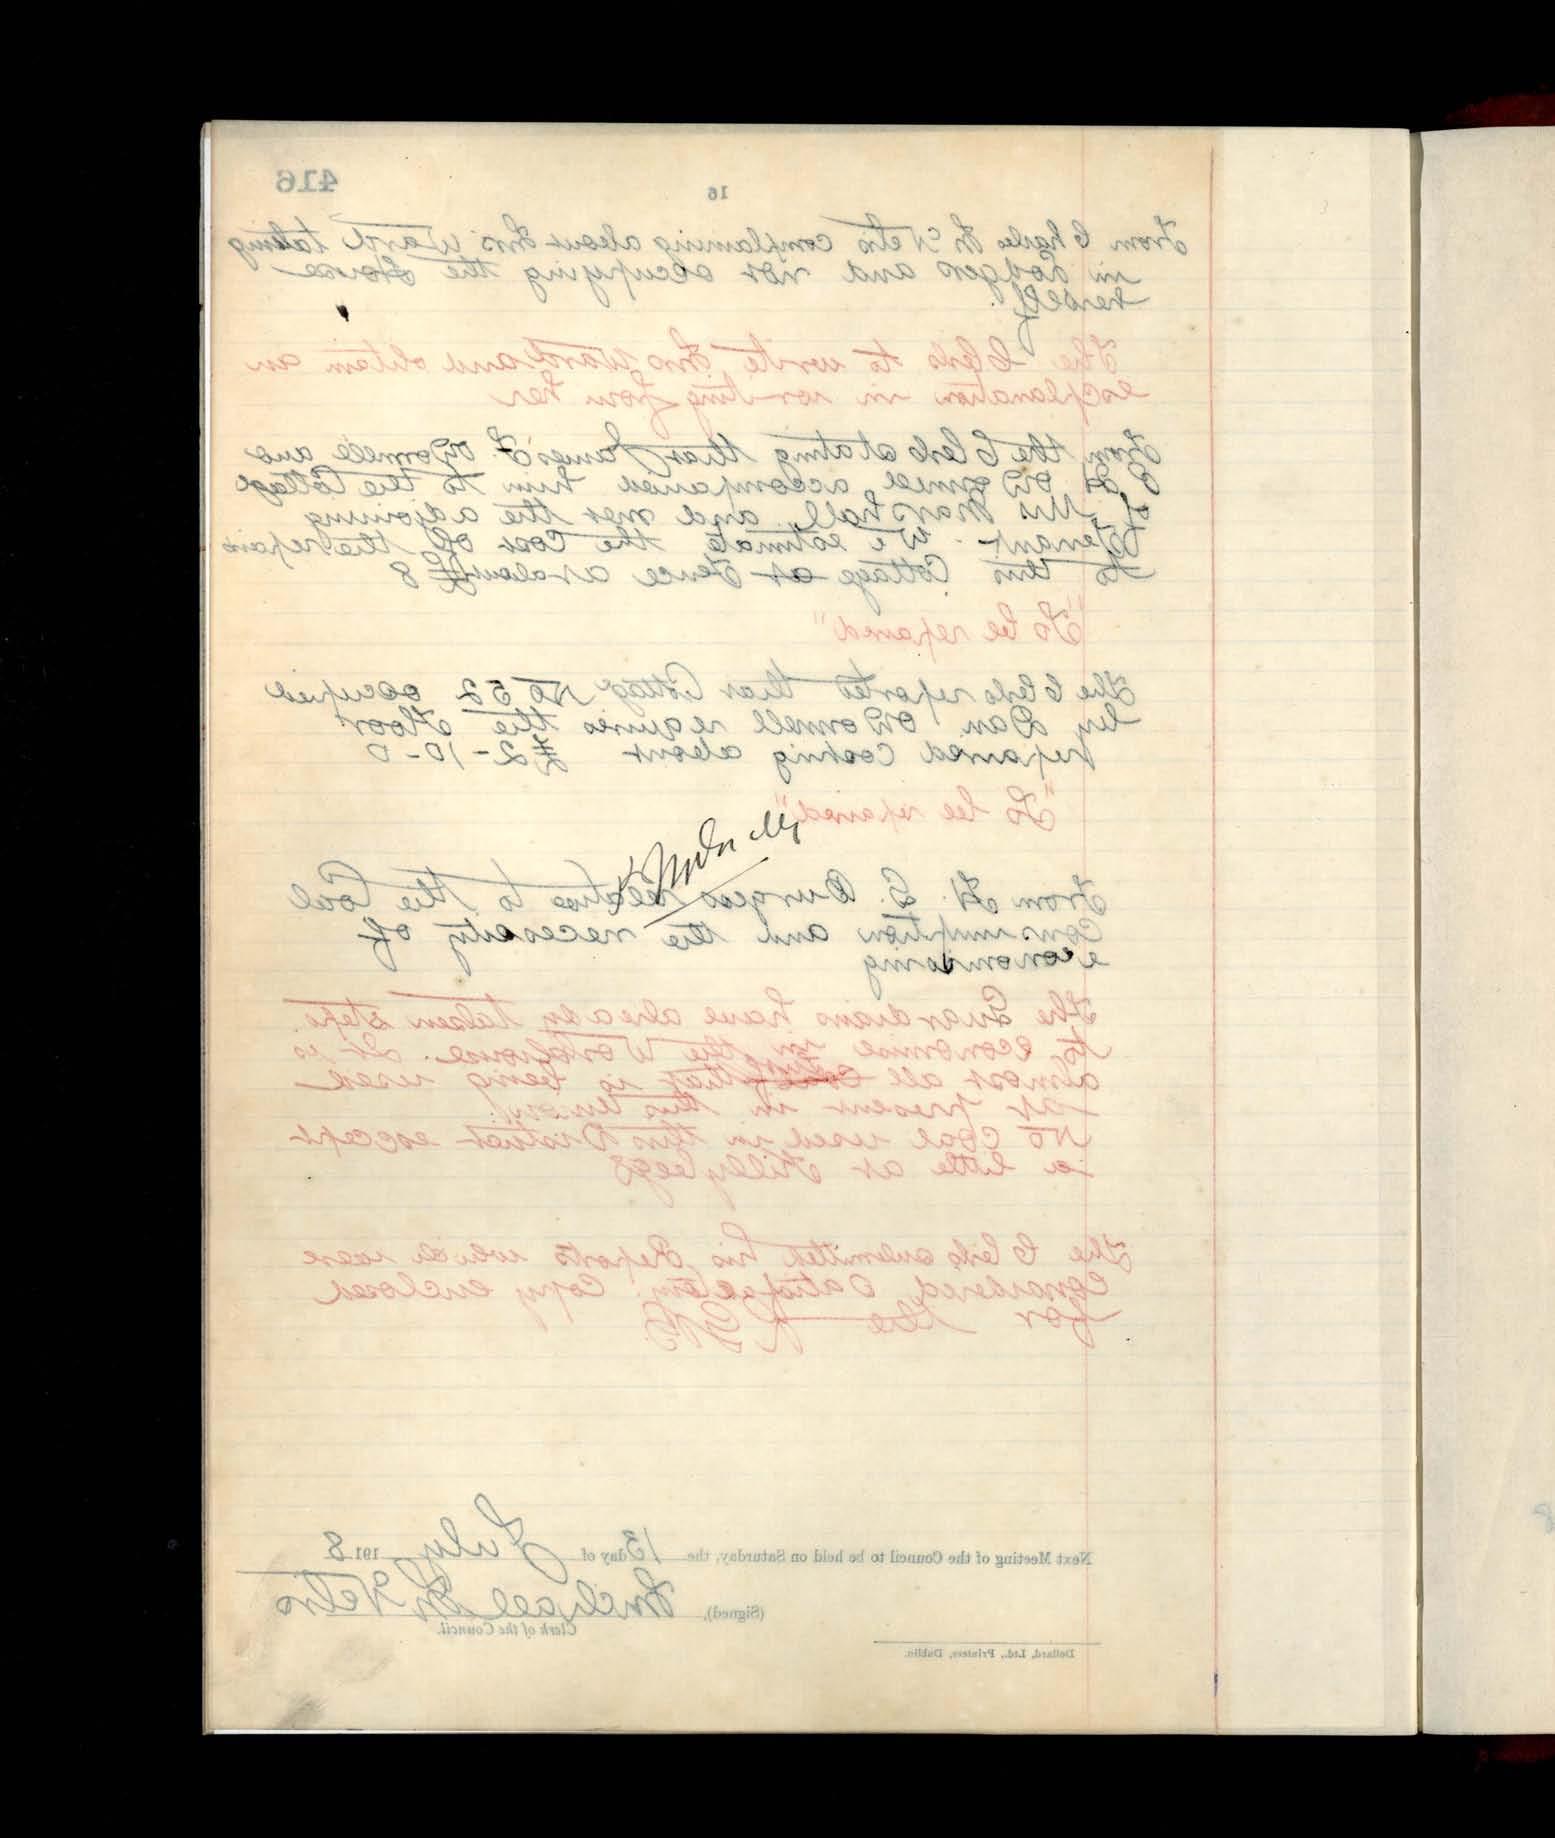 416
16
From Charles McNelis complaining about Mrs Ward taking
in Lodgers and not occupying the House
herself.
The Clerk to write Mrs Ward and obtain an
explanation in writing from her
From the Clerk stating that James F. O'Donnell and
O'Donnell accompanied him to the Cottage
of Mrs Marshall and met the adjoining
Tenant. We estimate the Cost of the repairs
to this Cottage at Fence at about £8
"To be repaired"
The Clerk reported that Cottage No 52 occupied
by Dan O'Donnell requires the Floor
repaired costing about £2-10-0
"To be repaired"
From H. G. Burgess relative to the Coal
Consumption and the necessity of
economising
The Guardians have already taken steps
to economise in the Workhouse. It is
almost all turf that is being used
at present in this Union.
No coal used in this District except
a little at Killybegs
The Clerk submitted his Reports which were
Considered Satisfactory. Copy enclosed
for the LGB.
Next Meeting of the Council to be held on Saturday, the 13 day of July 1918
(Signed), Michael McNelis
Clerk of the Council.
Dollard, Ltd., Printers, Dublin.